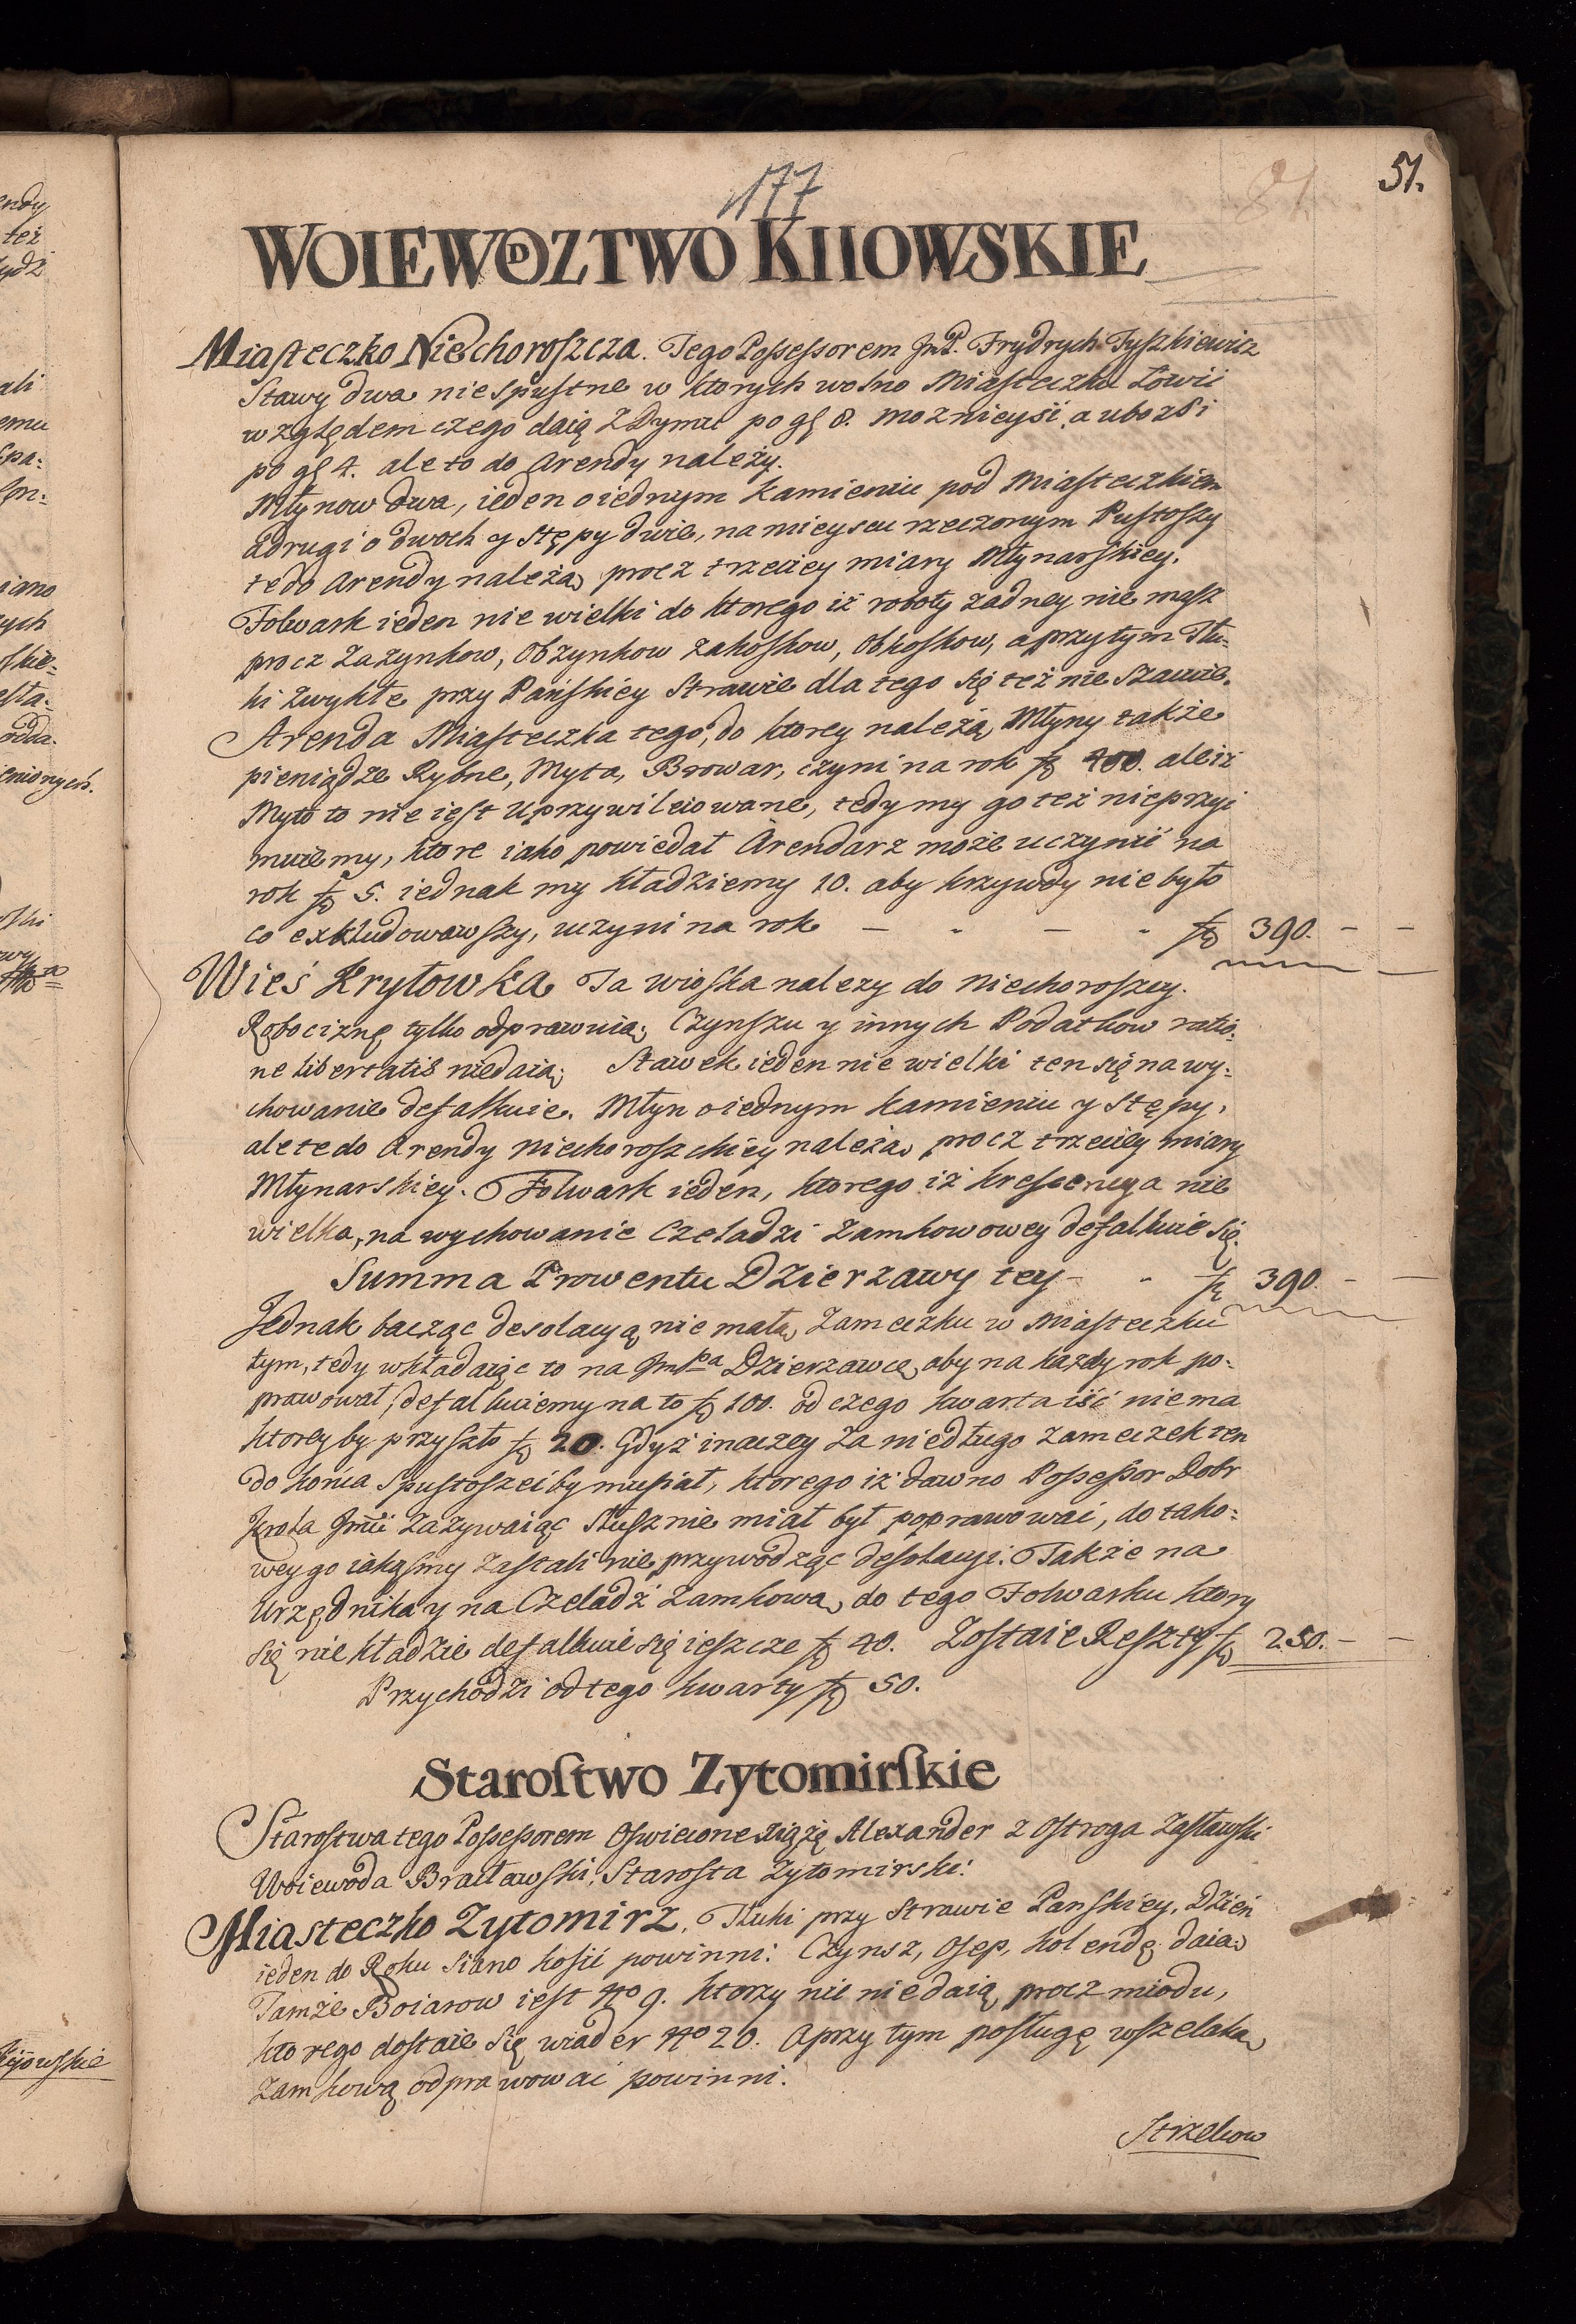 177
51.
WOIEWODZTWO KIIOWSKIE
Miasteczko Niechoroszcza. Tego Possessorem JmP. Frydrych Tyszkiewicz
Stawy dwa niespustne w ktorych wolno Miasteczku Łowić
względem czego daią z Dymu po gß 8. moznieysi, a ubozsi
po gß 4. ale to do Arendy należy.
Młynow dwa, ieden o iednym kamieniu pod Miasteczkiem
a drugi o dwoch y stępy dwie, na mieyscu rzeczonym Pustoszy
te do Arendy należą, procz trzeciey miary Młynarskiey.
Folwark ieden nie wielki do ktorego iż roboty żadney nie masz
procz zazynkow, Obzynkow zakoskow, Obkoskow, a przytym Tłu-
ki zwykłe przy Pańskiey strawie dla tego się też nie szacuie.
Arenda Miasteczka tego, do ktorey należą Młyny także
pieniądze Rybne, Myta, Browar, czyni na rok fl 400. ale iż
Myto to nie iest uprzywileiowane, tedy my go też nieprzyi
muiemy, ktore iako powiedał Arendarz może uczynić na
rok fl 5. iednak my kładziemy 10. aby krzywdy nie było
co exkludowawszy, uczyni na rok - - - - fl 390. - -
Wieś Kryłowka Ta wioska nalezy do Niechoroszczy.
Robociznę tylko odprawuią, Czynszu y innych Podatkow ratio-
ne libertatis niedaią. Stawek ieden nie wielki ten się na wy-
chowanie defalkuie. Młyn o iednym kamieniu y stępy,
ale te do Arendy Niechoroszckiey należą, procz trzeciey miary
Młynarskiey. Folwark ieden, ktorego iż krescencya nie
wielka, na wychowanie Czeladzi Zamkowowey defalkuie się.
Summa Prowentu Dzierzawy tey - - fl 390. - -
Jednak bacząc desolacyą nie małą Zameczku w Miasteczku
tym, tedy wkładaiąc to na JmPa Dzierzawcę, aby na kazdy rok po-
prawował, defalkuiemy na to fl 100. od czego kwarta iść nie ma
ktoreyby przyszło fl 20. Gdyż inaczey za niedługo zameczek ten
do konca spustoszeć by musiał, ktorego iż dawno Possessor Dobr
Krola Jmći zażywaiąc słusznie miał był poprawować, do tako-
wey go iakąśmy zastali nie przywodząc desolacyi. Także na
Urzędnika y na Czeladź zamkową, do tego Folwarku ktory
się nie kładzie defalkuie się ieszcze fl 40. Zostaie Reszty fl 250. - -
Przychodzi od tego kwarty fl 50.
Starostwo Zytomirskie
Starostwa tego Possessorem Oswiecone Xiążę Alexander z Ostroga Zasławski
Woiewoda Bracławski, Starosta Zytomirski.
Miasteczko Zytomirz. Tłuki przy Strawie Panskiey, Dzień
ieden do Roku Siano kosić powinni. Czynsz, Osep, kolendę daią
Tamże Boiarow iest No 9. ktorzy nic nie daią procz miodu,
ktorego dostaie się wiader No 20. a przy tym posługę wszelaką
zamkową odprawować powinni.
Strzelcow